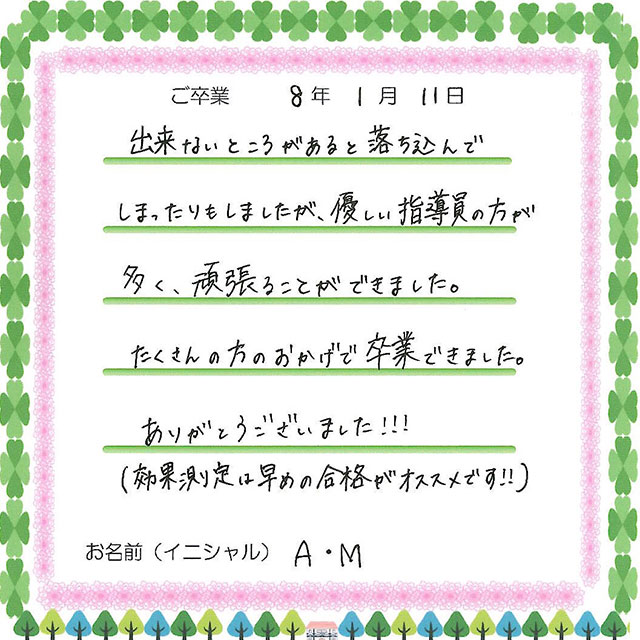 ご卒業 8年 1月 11日
出来ないところがあると落ち込んで
しまったりもしましたが、優しい指導員の方が
多く、頑張ることができました。
たくさんの方のおかげで卒業できました。
ありがとうございました!!!
(効果測定は早めの合格がオススメです!!)
お名前(イニシャル) A・M